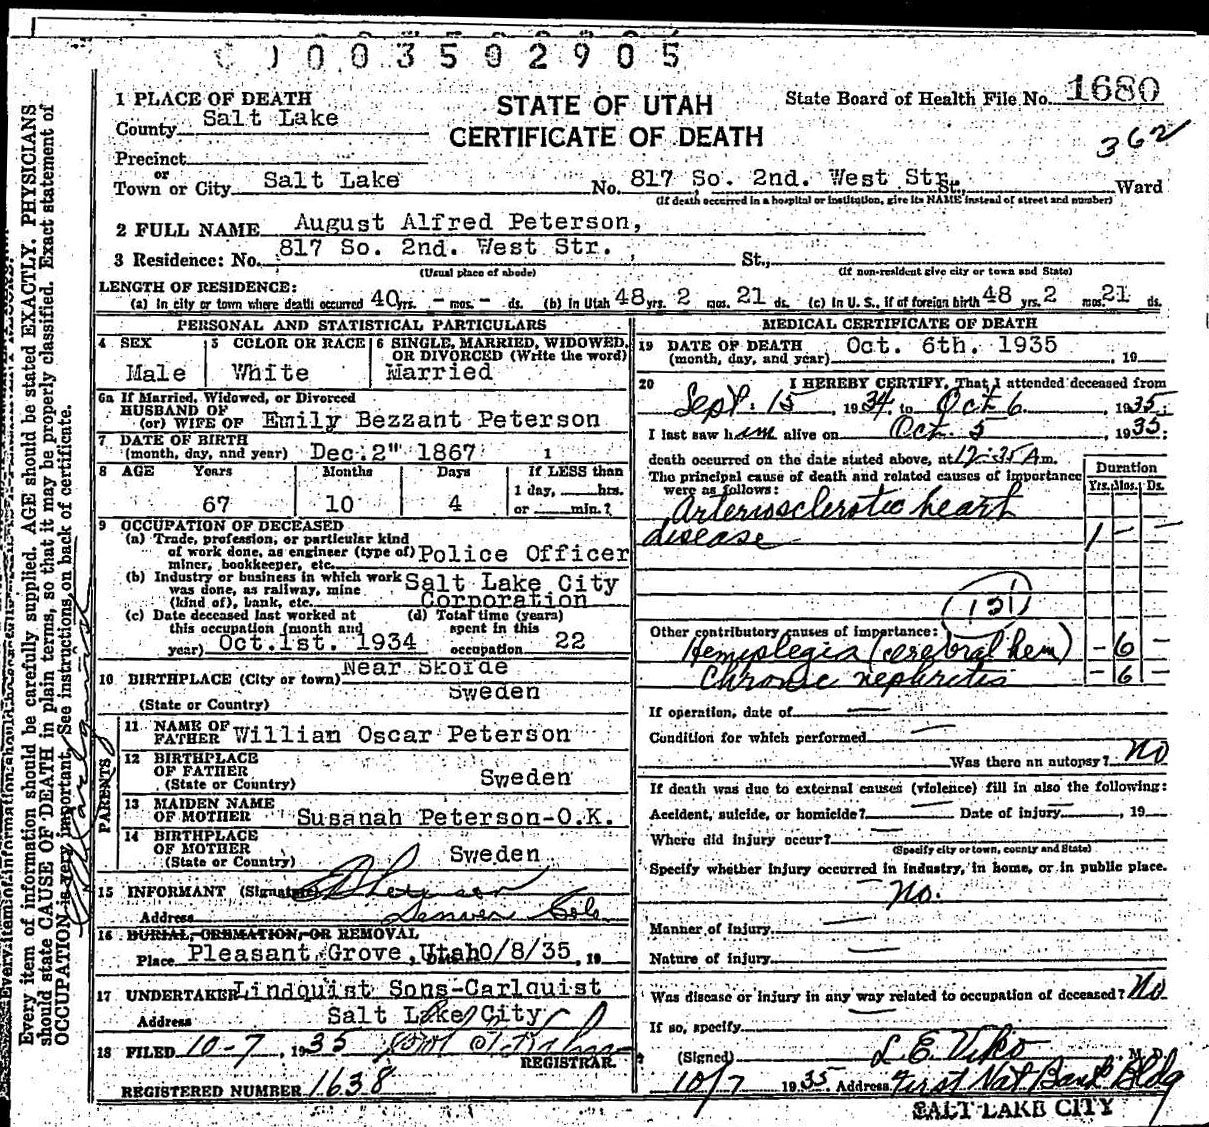 003502905
1 PLACE OF DEATH
County Salt Lake
STATE OF UTAH
CERTIFICATE OF DEATH
State Board of Health File No. 1680
362
Precinct
or
Town or City Salt Lake No. 817 So. 2nd. West Str. St., Ward
(If death occurred in a hospital or institution, give its NAME instead of street and number)
2 FULL NAME August Alfred Peterson,
3 Residence: No. 817 So. 2nd. West Str. St.,
(Usual place of abode) (If non-resident give city or town and State)
LENGTH OF RESIDENCE:
(a) In city or town where death occurred 40 yrs. - mos. - ds. (b) In Utah 48 yrs. 2 mos. 21 ds. (c) In U. S., if of foreign birth 48 yrs. 2 mos. 21 ds.
PERSONAL AND STATISTICAL PARTICULARS
4 SEX Male
5 COLOR OR RACE White
6 SINGLE, MARRIED, WIDOWED, OR DIVORCED (Write the word)
Married
6a If Married, Widowed, or Divorced
HUSBAND OF
(or) WIFE OF Emily Bezzant Peterson
7 DATE OF BIRTH
(month, day, and year) Dec. 2" 1867
8 AGE Years Months Days If LESS than
67 10 4 1 day, hrs.
or min.?
9 OCCUPATION OF DECEASED
(a) Trade, profession, or particular kind
of work done, as engineer (type of) Police Officer
miner, bookkeeper, etc.
(b) Industry or business in which work Salt Lake City
was done, as railway, mine
(kind of), bank, etc. Corporation
(c) Date deceased last worked at (d) Total time (years)
this occupation (month and spent in this
year) Oct. 1st. 1934 occupation 22
10 BIRTHPLACE (City or town) Near Skofde
(State or Country) Sweden
PARENTS
11 NAME OF
FATHER Willian Oscar Peterson
12 BIRTHPLACE
OF FATHER
(State or Country) Sweden
13 MAIDEN NAME
OF MOTHER Susanah Peterson-O.K.
14 BIRTHPLACE
OF MOTHER
(State or Country) Sweden
15 INFORMANT (Signature)
Address Denver Colo
16 BURIAL, CREMATION, OR REMOVAL
Place Pleasant Grove, Utah 0/8/35, 19
17 UNDERTAKER Lindquist Sons-Carlquist
Address Salt Lake City
18 FILED 10-7, 1935
REGISTRAR.
REGISTERED NUMBER 1638
MEDICAL CERTIFICATE OF DEATH
19 DATE OF DEATH
(month, day, and year) Oct. 6th. 1935, 19
20 I HEREBY CERTIFY, That I attended deceased from
Sept. 15, 1934, to Oct 6, 1935;
I last saw him alive on Oct. 5, 1935;
death occurred on the date stated above, at 12:35 A m.
The principal cause of death and related causes of importance
were as follows:
Duration
Yrs. Mos. Ds.
Arteriosclerotic heart
disease 1 - -
131
Other contributory causes of importance:
Hemiplegia (cerebral hem) - 6 -
Chronic nephritis - 6 -
If operation, date of
Condition for which performed
Was there an autopsy? No
If death was due to external causes (violence) fill in also the following:
Accident, suicide, or homicide? Date of injury, 19
Where did injury occur?
(Specify city or town, county and State)
Specify whether injury occurred in industry, in home, or in public place.
No.
Manner of injury
Nature of injury
Was disease or injury in any way related to occupation of deceased? No
If so, specify
(Signed) L. E. Viko M. D.
10/7 1935 Address First Nat Bank Bldg
SALT LAKE CITY
Every item of information should be carefully supplied. AGE should be stated EXACTLY. PHYSICIANS
should state CAUSE OF DEATH in plain terms, so that it may be properly classified. Exact statement of
OCCUPATION is very important. See instructions on back of certificate.